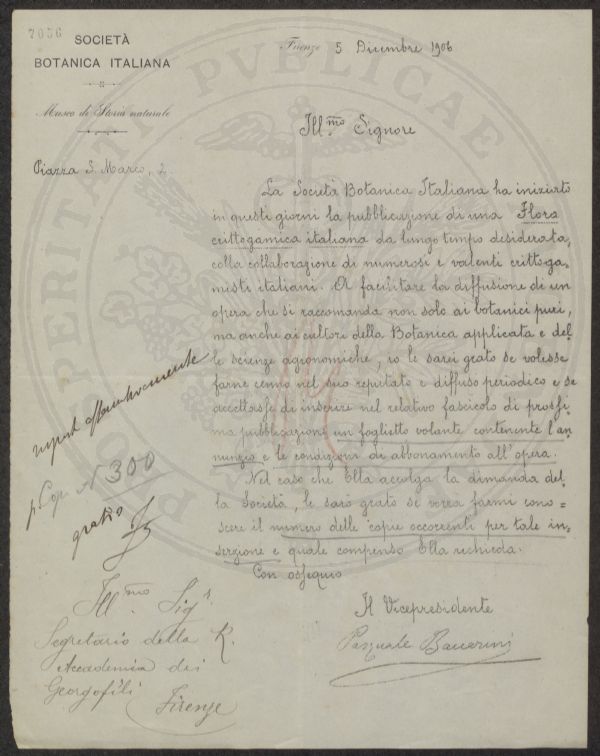 7056
SOCIETÀ
BOTANICA ITALIANA
Museo di Storia naturale
Piazza S. Marco, 2.
Firenze 5 Dicembre 1906
Ill.mo Signore
La Società Botanica Italiana ha iniziato
in questi giorni la pubblicazione di una Flora
crittogamica italiana da lungo tempo desiderata,
colla collaborazione di numerosi e valenti crittoga-
misti italiani. A facilitare la diffusione di un
opera che si raccomanda non solo ai botanici puri,
ma anche ai cultori della Botanica applicata e del-
le scienze agronomiche, io le sarei grato se volesse
farne cenno nel suo reputato e diffuso periodico e se
accettasse di inserire nel relativo fascicolo di prossi-
ma pubblicazione un foglietto volante contenente l'an-
nunzio e le condizioni di abbonamento all'opera.
Nel caso che Ella accolga la dimanda del-
la Società, le sarò grato se vorrà farmi cono=
scere il numero delle copie occorrenti per tale in-
serzione e quale compenso Ella richieda.
Con ossequio
Il Vicepresidente
Pasquale Baccarini
affermativamente
N 300
gratis
Ill.mo Sigr.
Segretario della R.
Accademia dei
Georgofili
Firenze
PROSPERITATI PVBLICAE